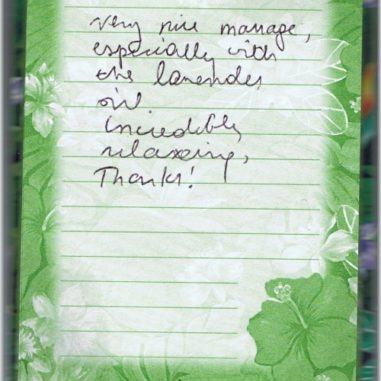 very nice massage,
especially with
the lavender
oil
incredibly
relaxing,
Thanks!